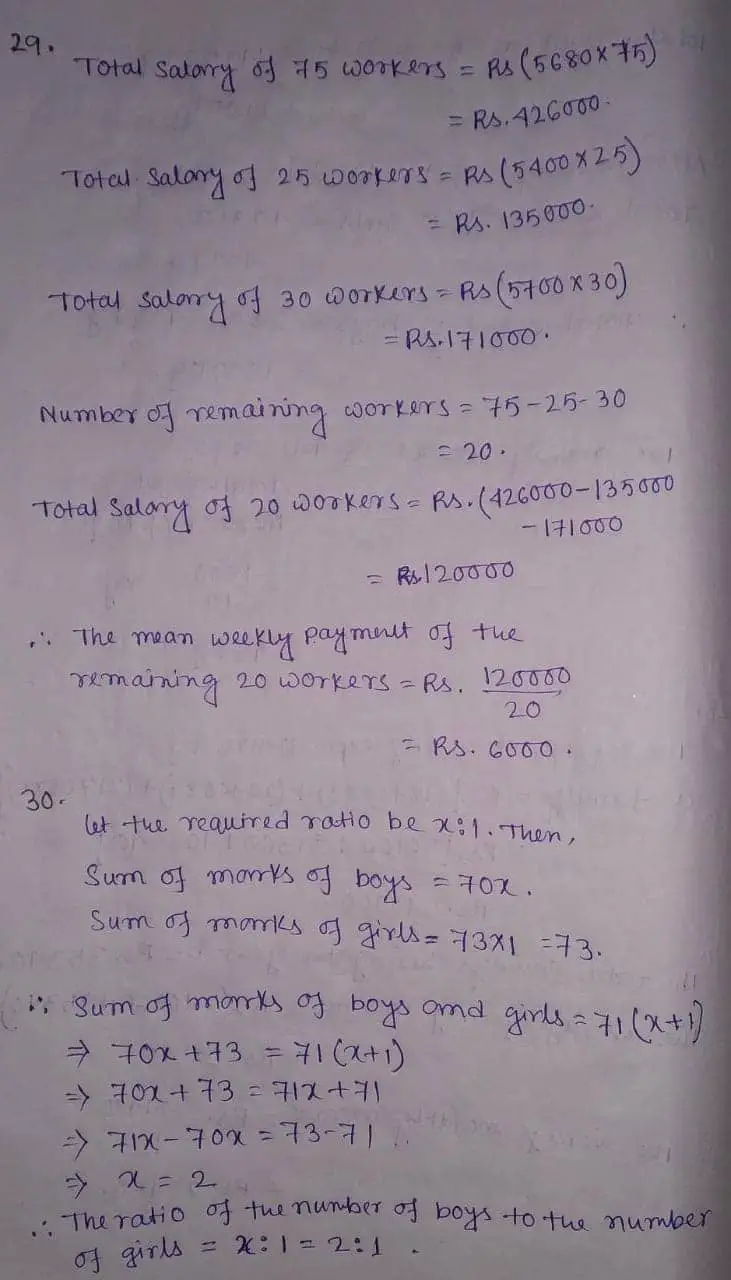 29.
Total Salary of 75 workers = Rs (5680 x 75)
= Rs. 426000.
Total Salary of 25 workers = Rs (5400 x 25)
= Rs. 135000.
Total salary of 30 workers = Rs (5700 x 30)
= Rs. 171000.
Number of remaining workers = 75 - 25 - 30
= 20.
Total Salary of 20 workers = Rs. (426000 - 135000
- 171000
= Rs 120000
∴ The mean weekly payment of the
remaining 20 workers = Rs. 120000
20
= Rs. 6000.
30.
let the required ratio be x:1. Then,
Sum of marks of boys = 70x.
Sum of marks of girls = 73x1 = 73.
∴ Sum of marks of boys and girls = 71(x+1)
⇒ 70x + 73 = 71(x+1)
⇒ 70x + 73 = 71x + 71
⇒ 71x - 70x = 73 - 71
⇒ x = 2
∴ The ratio of the number of boys to the number
of girls = x:1 = 2:1.